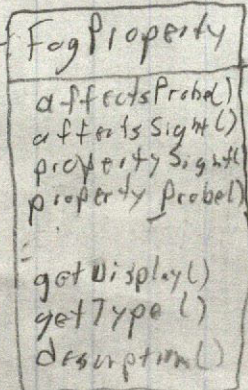 FogProperty
affectsProbe()
affectsSight()
propertySight(
propertyProbe()
getDisplay()
getType ()
description()